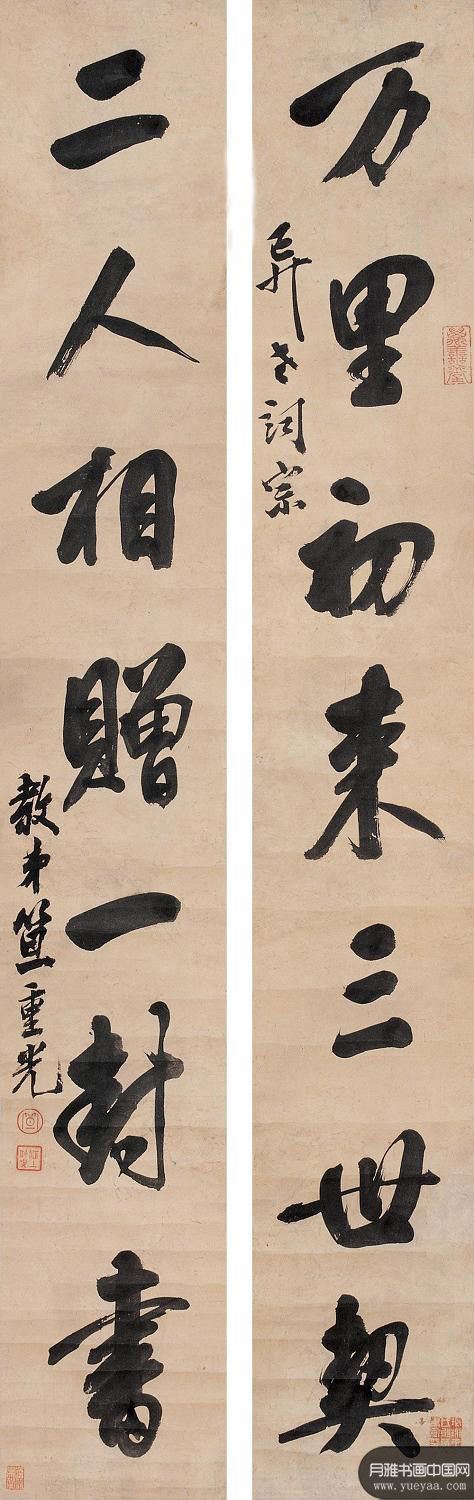 万里初来三世契
老词宗
二人相贈一封書
教弟笪重光
月雅书画中国网
www.yueyaa.com